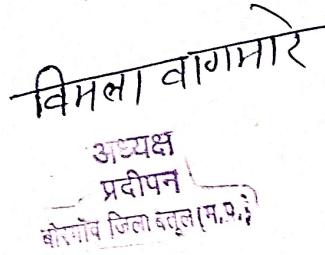 विमला वागमारे
अध्यक्ष
प्रदीपन
बोरगाँव जिला बैतूल (म.प्र.)